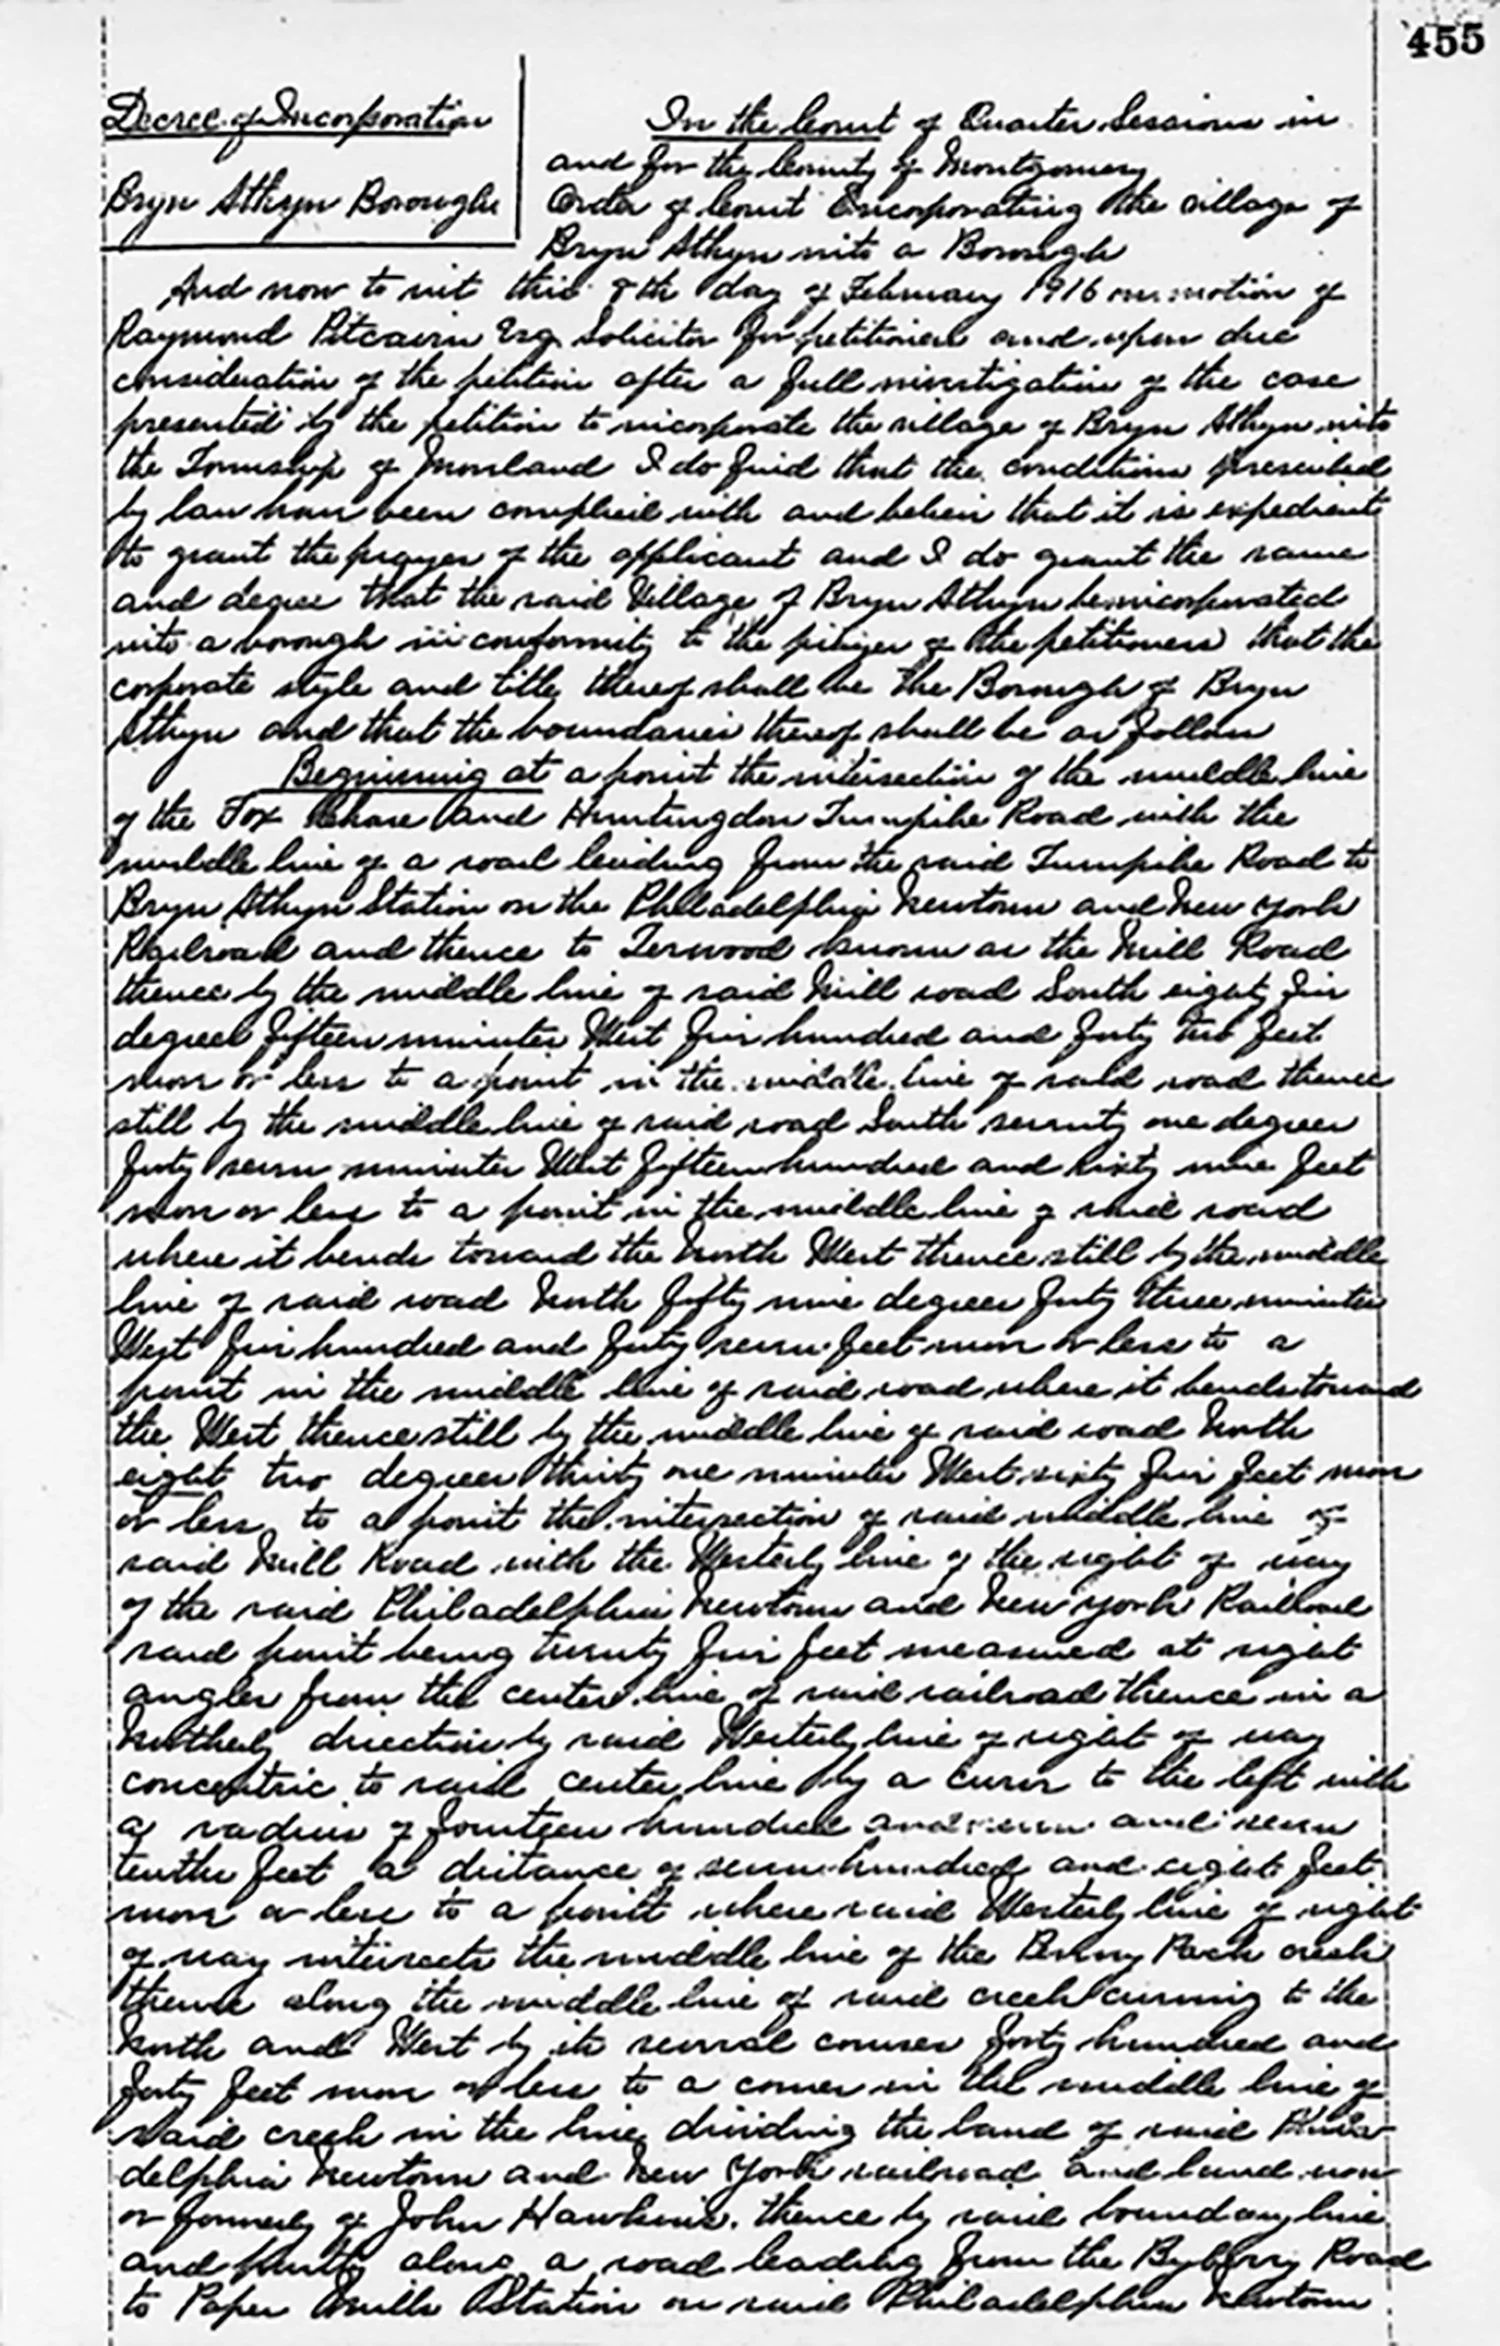 455
Decree of Incorporation
Bryn Athyn Borough
In the Court of Quarter Sessions in
and for the County of Montgomery
Order of Court Incorporating the village of
Bryn Athyn into a Borough
And now to wit this 8th day of February 1916 on motion of
Raymond Pitcairn Esq. Solicitor for petitioners and upon due
consideration of the petition after a full investigation of the case
presented by the petition to incorporate the village of Bryn Athyn into
the Township of Moreland I do find that the conditions prescribed
by law have been complied with and believe that it is expedient
to grant the prayer of the applicant and I do grant the same
and decree that the said Village of Bryn Athyn be incorporated
into a borough in conformity to the prayer of the petitioners that the
corporate style and title thereof shall be the Borough of Bryn
Athyn and that the boundaries thereof shall be as follows
Beginning at a point the intersection of the middle line
of the Fox Chase and Huntingdon Turnpike Road with the
middle line of a road leading from the said Turnpike Road to
Bryn Athyn Station on the Philadelphia Newtown and New York
Railroad and thence to Terwood known as the Mill Road
thence by the middle line of said Mill road South eighty five
degrees fifteen minutes West five hundred and forty two feet
more or less to a point in the middle line of said road thence
still by the middle line of said road South seventy one degrees
forty seven minutes West fifteen hundred and sixty nine feet
more or less to a point in the middle line of said road
where it bends toward the North West thence still by the middle
line of said road North fifty nine degrees forty three minutes
West five hundred and forty seven feet more or less to a
point in the middle line of said road where it bends toward
the West thence still by the middle line of said road North
eight two degrees thirty one minutes West sixty five feet more
or less to a point the intersection of said middle line of
said Mill Road with the Westerly line of the right of way
of the said Philadelphia Newtown and New York Railroad
said point being twenty five feet measured at right
angles from the center line of said railroad thence in a
Northerly direction by said Westerly line of right of way
concentric to said center line by a curve to the left with
a radius of fourteen hundred and seven and seven
tenths feet a distance of seven hundred and eight feet
more or less to a point where said Westerly line of right
of way intersects the middle line of the Penny Pack creek
thence along the middle line of said creek curving to the
North and West by its several courses forty hundred and
forty feet more or less to a corner in the middle line of
said creek in the line dividing the land of said Phila
delphia Newtown and New York railroad and land now
or formerly of John Hawkins. thence by said boundary line
and partly along a road leading from the Byberry Road
to Paper Mills Station on said Philadelphia Newtown